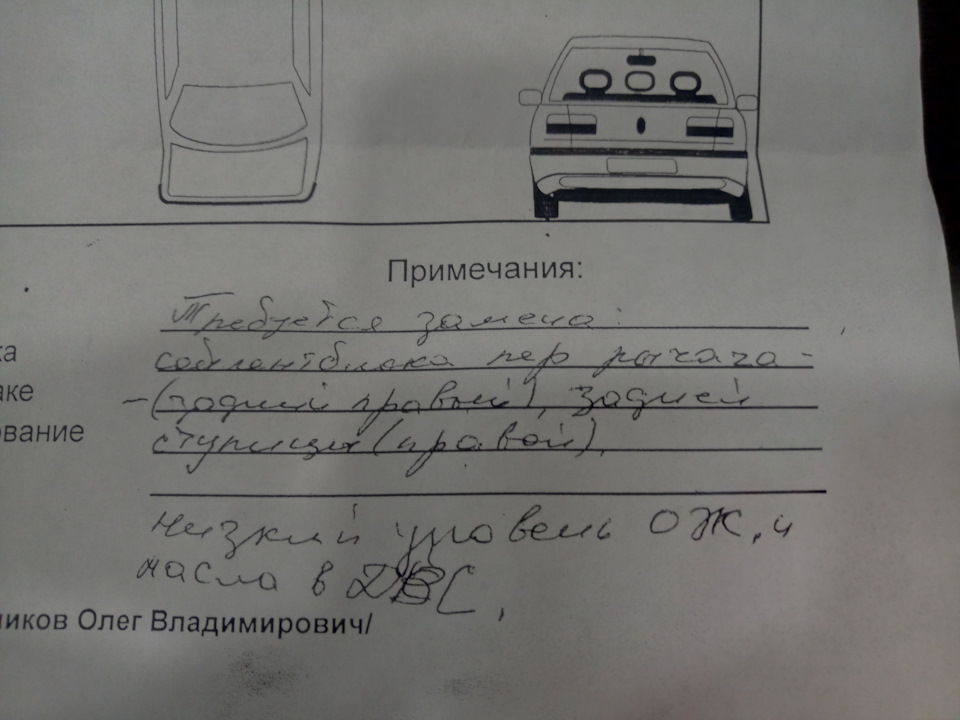 Примечания:
Требуется замена:
ка
сайлентблока пер рычага -
аке
- (задний правый), задней
ование
ступицы (правой).
низкий уровень ОЖ, и
масла в ДВС,
ников Олег Владимирович/